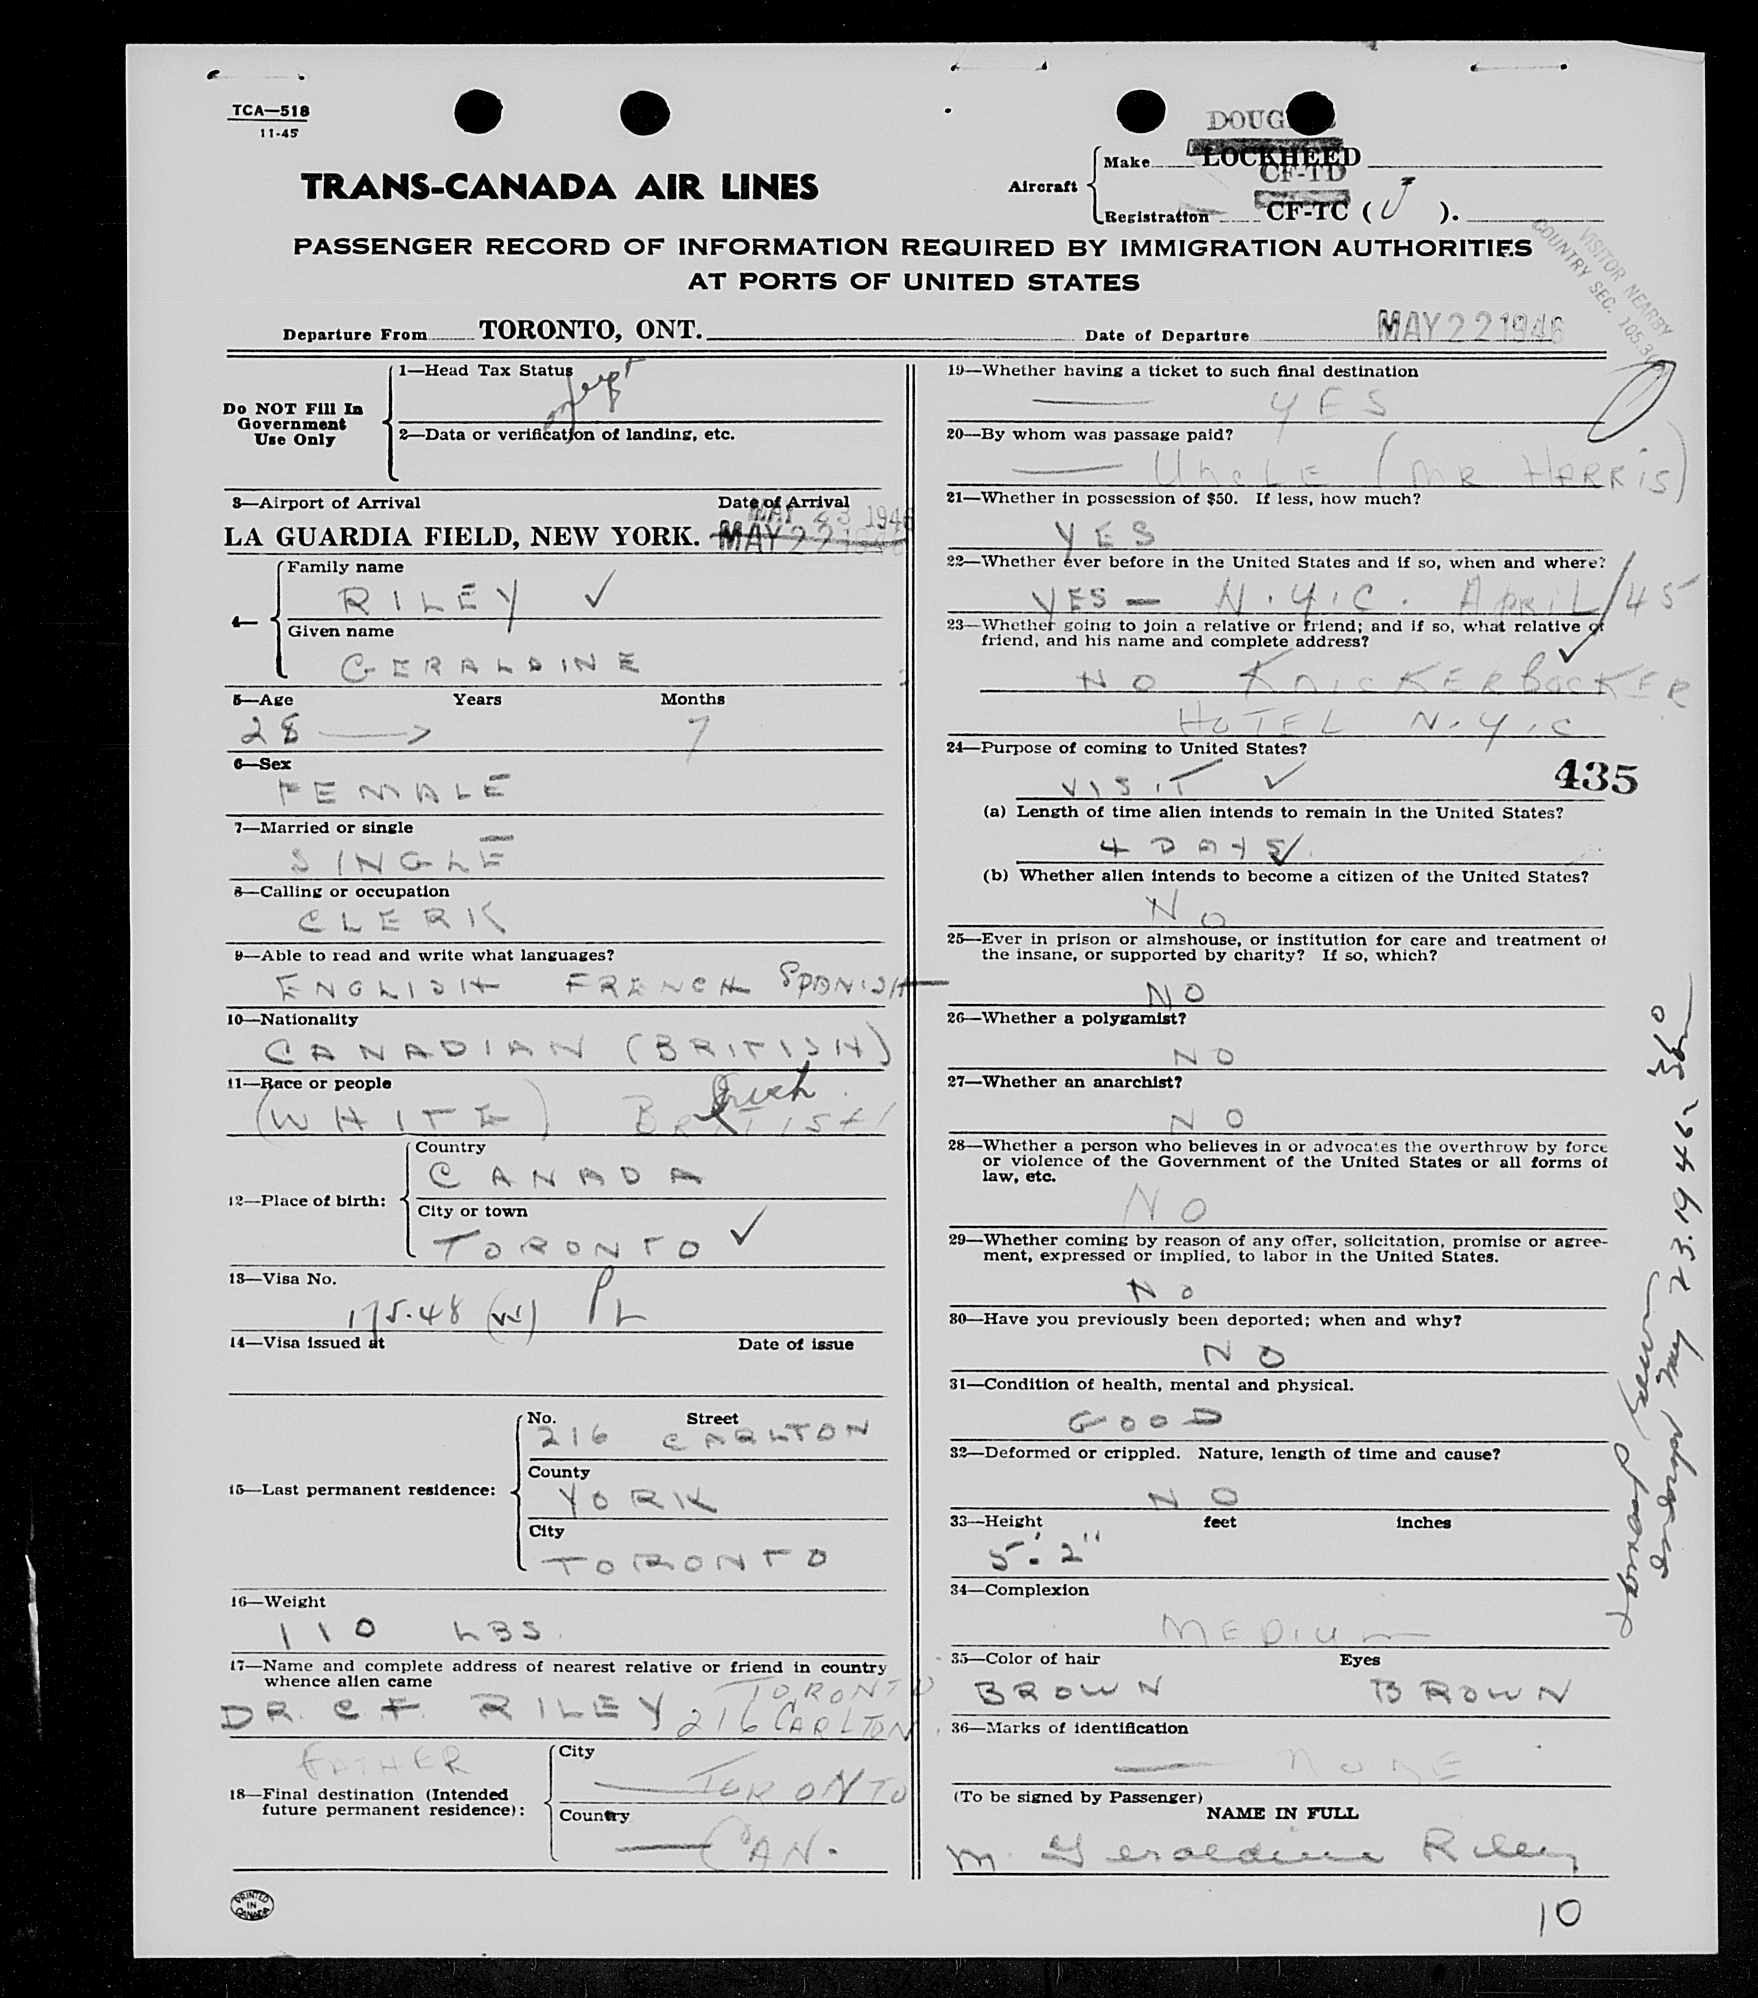 TCA—518
11-45
TRANS-CANADA AIR LINES
Aircraft
DOUG
Make LOCKHEED
CF-TD
Registration CF-TC ( J ).
PASSENGER RECORD OF INFORMATION REQUIRED BY IMMIGRATION AUTHORITIES
AT PORTS OF UNITED STATES
VISITOR NEARBY
COUNTRY SEC.
Departure From TORONTO, ONT.
Date of Departure MAY 22 1946
Do NOT Fill In
Government
Use Only
1—Head Tax Status
2—Data or verification of landing, etc.
3—Airport of Arrival Date of Arrival
MAY 23 1946
LA GUARDIA FIELD, NEW YORK. MAY 22 1946
4—
Family name
RILEY ✓
Given name
GERALDINE
5—Age Years Months
28 7
6—Sex
FEMALE
7—Married or single
SINGLE
8—Calling or occupation
CLERK
9—Able to read and write what languages?
ENGLISH FRENCH SPANISH
10—Nationality
CANADIAN (BRITISH)
11—Race or people
Irish
(WHITE) BRITISH
12—Place of birth:
Country
CANADA
City or town
TORONTO ✓
13—Visa No.
175.48 (W) PL
14—Visa issued at Date of issue
15—Last permanent residence:
No. Street
216 CARLTON
County
YORK
City
TORONTO
16—Weight
110 LBS.
17—Name and complete address of nearest relative or friend in country
whence alien came
TORONTO
DR. C F. RILEY 216 CARLTON
FATHER
18—Final destination (Intended
future permanent residence):
City
TORONTO
Country
CAN.
PRINTED
IN
CANADA
19—Whether having a ticket to such final destination
— YES
20—By whom was passage paid?
— UNCLE (MR HARRIS)
21—Whether in possession of $50. If less, how much?
YES
22—Whether ever before in the United States and if so, when and where?
YES — N.Y.C. APRIL/45
23—Whether going to join a relative or friend; and if so, what relative or
friend, and his name and complete address?
NO KNICKERBOCKER
HOTEL N.Y.C
24—Purpose of coming to United States?
VISIT ✓
435
(a) Length of time alien intends to remain in the United States?
4 DAYS ✓
(b) Whether alien intends to become a citizen of the United States?
NO
25—Ever in prison or almshouse, or institution for care and treatment of
the insane, or supported by charity? If so, which?
NO
26—Whether a polygamist?
NO
27—Whether an anarchist?
NO
28—Whether a person who believes in or advocates the overthrow by force
or violence of the Government of the United States or all forms of
law, etc.
NO
29—Whether coming by reason of any offer, solicitation, promise or agree-
ment, expressed or implied, to labor in the United States.
NO
30—Have you previously been deported; when and why?
NO
31—Condition of health, mental and physical.
GOOD
32—Deformed or crippled. Nature, length of time and cause?
NO
33—Height feet inches
5' 2"
34—Complexion
MEDIUM
35—Color of hair Eyes
BROWN BROWN
36—Marks of identification
— NONE
(To be signed by Passenger)
NAME IN FULL
M. Geraldine Riley
10
May 23. 1946